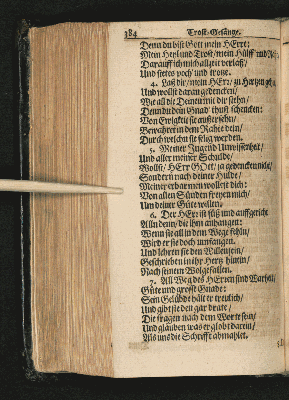 384 Trost-Gesänge.
Denn du bist Gott mein HErr:
Mein Heyl und Trost/ mein Hülff und
Darauff ich mich allzeit verlaß/
Und stetes poch' und trotze.
4. Laß dir/ mein HErr/ zu Hertzen
Und wollst daran gedencken/
Wie all die Deinen mit dir
Denn du dein Gnad' thust schencken:
Von Ewigkeit sie
Bewahre in dem Rechte dein/
Durch welchn sie selig werden.
5. Meiner Jugend Unwissenheit/
Und aller meiner Schulde/
Wollst/ HErr Gott/ ja gedencken nicht/
Sondern nach deiner Hulde/
Meiner erbarmen wollest dich:
Von allen Sünden freyen mich/
Um deiner Güte willen.
6. Der HErr ist süß und auffgericht
Alln denn/ die ihm anhangen:
Wenn sie all in dem Wege fehln/
Wird er sie doch umfangen.
Und lehren sie den Willen sein/
Geschrieben in ihr Hertz hinein/
Nach seinem Wolgefallen.
7. All Weg des HErren sind Warheit/
Güte und grosse Gnade:
Sein Gelübde hält er treulich/
Und gibt sie den gar drate/
Die fragen nach dem Worte sein/
Und gläuben was er globt darein/
Als uns die Schrifft abmahlet.